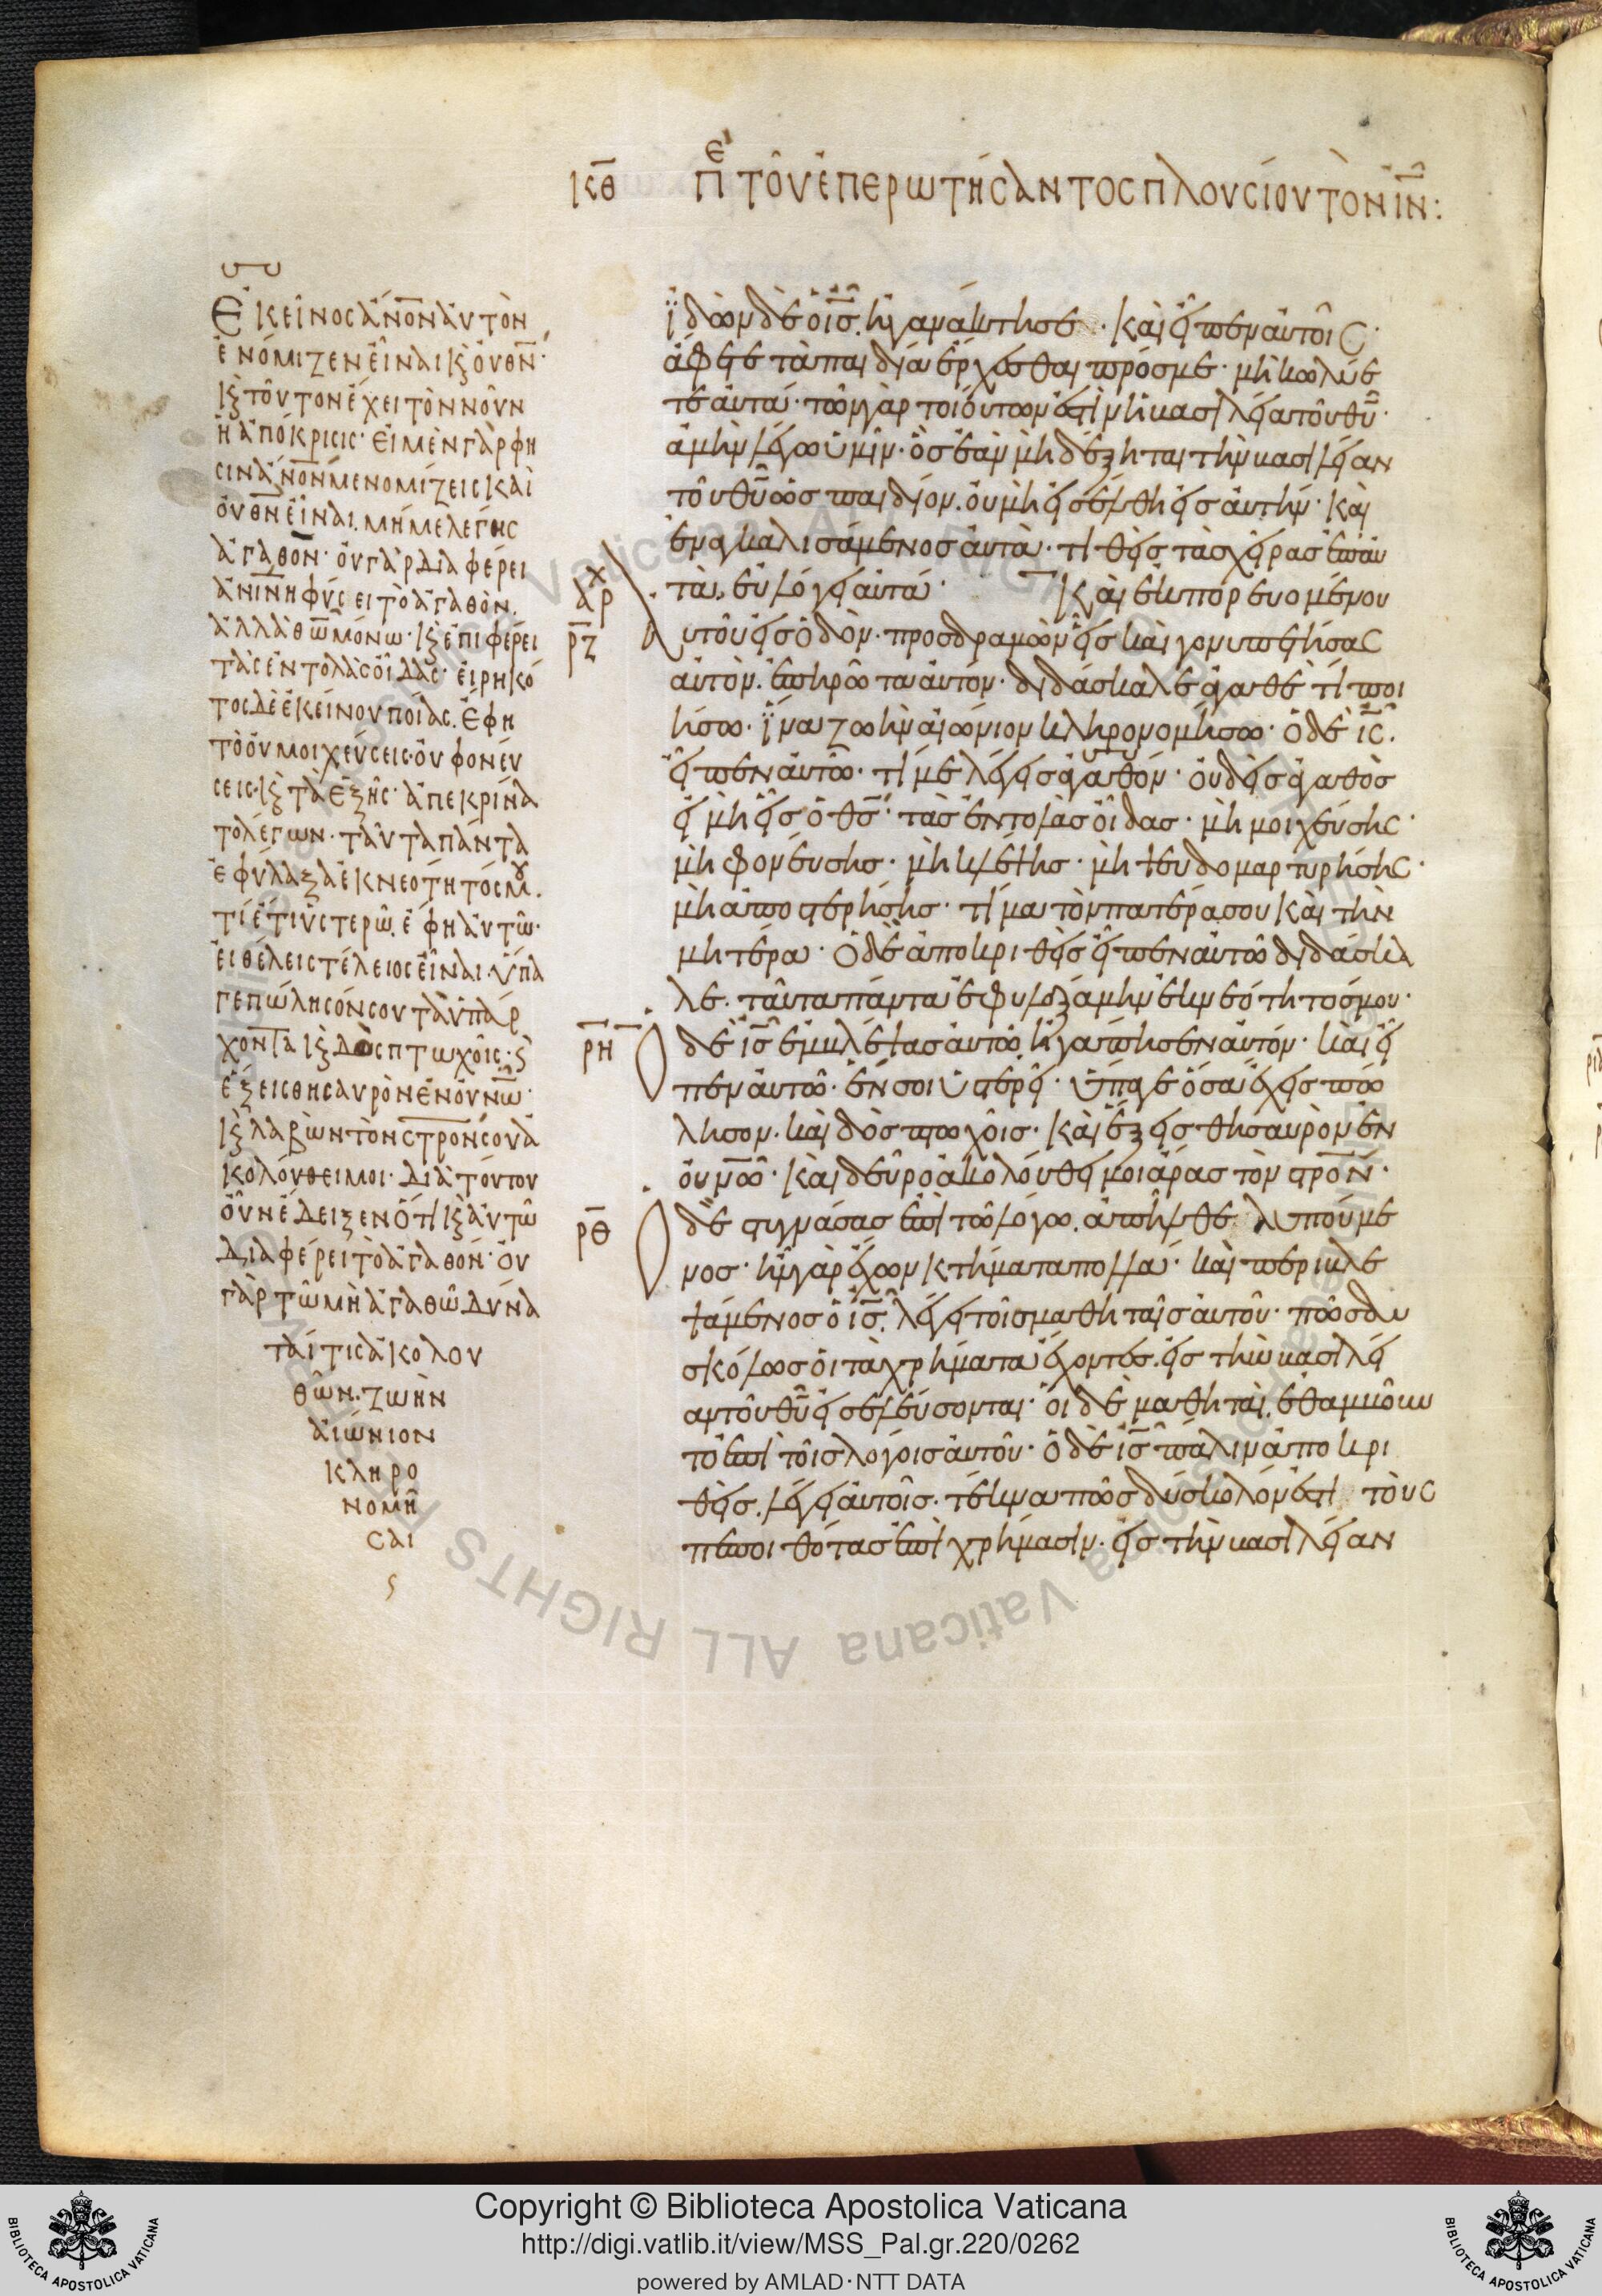 κθ πε τοῦ ἐπερωτήσαντος πλουσίου τὸν ιν:
Ἐκεῖνος ἄνον αὐτὸν
ἐνόμιζεν εἶναι κ οὐ θν·
κ τοῦτον ἔχει τὸν νοῦν
ἡ ἀπόκρισις· εἰ μὲν γὰρ φη
σιν ἄνον με νομίζεις καὶ
οὐ θν εἶναι. μή με λέγης
ἀγαθόν· οὐ γὰρ διαφέρει
ἀνινη φύσει τὸ ἀγαθὸν.
ἀλλὰ θω μόνω· κ ἐπιφέρει
τὰς ἐντολὰς οἶδας· εἰρηκό
τος δὲ ἐκείνου ποίας. ἔφη
τὸ οὐ μοιχεύσεις· οὐ φονεύ
σεις· κ τὰ ἑξῆς· ἀπεκρίνα
το λέγων· ταῦτα πάντα
ἐφύλαξα ἐκ νεότητός μου.
τί ἔτι ὑστερῶ. ἔφη αὐτῶ·
εἰ θέλεις τέλειος εἶναι. ὕπα
γε πώλησόν σου τὰ ὑπάρ
χοντα κ δὸς πτωχοῖς· κ
ἕξεις θησαυρὸν ἐν οὐνω·
κ λαβὼν τὸν στρον σου ἀ
κολούθει μοι· διὰ τούτου
οὖν ἔδειξεν ὅτι κ αὐτῶ
διαφέρει τὸ ἀγαθόν· οὐ
γὰρ τῶ μὴ ἀγαθῶ δύνα
ταί τις ἀκολου
θῶν· ζωὴν
αἰώνιον
κληρο
νομῆ
σαι
ἰδὼν δὲ ὁ ις. ἠγανάκτησε· καὶ εἶπεν αὐτοῖς·
ἄφετε τὰ παιδία ἔρχεσθαι πρός με· μὴ κωλύε
τε αὐτά· τῶν γὰρ τοιούτων ἐστὶν ἡ βασιλεία τοῦ θυ·
ἀμὴν λέγω ὑμῖν· ὃς ἐὰν μὴ δέξηται τὴν βασιλείαν
τοῦ θυ ὡς παιδίον. οὐ μὴ εἰσέλθη εἰς αὐτήν· καὶ
ἐναγκαλισάμενος αὐτὰ· τιθεὶς τὰς χεῖρας ἐπ' αὐ
τὰ. εὐλόγει αὐτά· Καὶ ἐκπορευομένου
αρχ
ρζ
αὐτοῦ εἰς ὁδὸν· προσδραμὼν εἷς καὶ γονυπετήσας
αὐτὸν. ἐπηρώτα αὐτόν· διδάσκαλε ἀγαθὲ τί ποι
ήσω· ἵνα ζωὴν αἰώνιον κληρονομήσω· ὁ δὲ ις.
εἶπεν αὐτῶ· τί με λέγεις ἀγαθόν· οὐδεὶς ἀγαθὸς
εἰ μὴ εἷς ὁ θς· τὰς ἐντολὰς οἶδας· μὴ μοιχεύσης·
μὴ φονεύσης· μὴ κλέψης· μὴ ψευδομαρτυρήσης·
μὴ ἀποστερήσης· τίμα τὸν πατέρα σου καὶ τὴν
μητέρα· ὁ δὲ ἀποκριθεὶς εἶπεν αὐτῶ διδάσκα
λε. ταῦτα πάντα ἐφυλαξάμην ἐκ νεότητός μου·
ρη
ὁ δὲ ις ἐμβλέψας αὐτῶ. ἠγάπησεν αὐτόν· καὶ εἶ
πεν αὐτῶ· ἕν σοι ὑστερεῖ· ὕπαγε ὅσα ἔχεις πώ
λησον· καὶ δὸς πτωχοῖς· καὶ ἕξεις θησαυρὸν ἐν
οὐνω· καὶ δεῦρο ἀκολούθει μοι ἄρας τὸν στρον·
ρθ
ὁ δὲ στυγνάσας ἐπὶ τῶ λόγω. ἀπῆλθε λυπούμε
νος· ἦν γὰρ ἔχων κτήματα πολλά· καὶ περιβλε
ψάμενος ὁ ις. λέγει τοῖς μαθηταῖς αὐτοῦ· πῶς δυ
σκόλως οἱ τὰ χρήματα ἔχοντες. εἰς τὴν βασιλεί
αν τοῦ θυ εἰσελεύσονται· οἱ δὲ μαθηταὶ. ἐθαμβοῦν
το ἐπὶ τοῖς λόγοις αὐτοῦ· ὁ δὲ ις πάλιν ἀποκρι
θεὶς. λέγει αὐτοῖς· τέκνα πῶς δύσκολόν ἐστι τοὺς
πεποιθότας ἐπὶ χρήμασιν. εἰς τὴν βασιλείαν
Copyright © Biblioteca Apostolica Vaticana
http://digi.vatlib.it/view/MSS_Pal.gr.220/0262
powered by AMLAD·NTT DATA